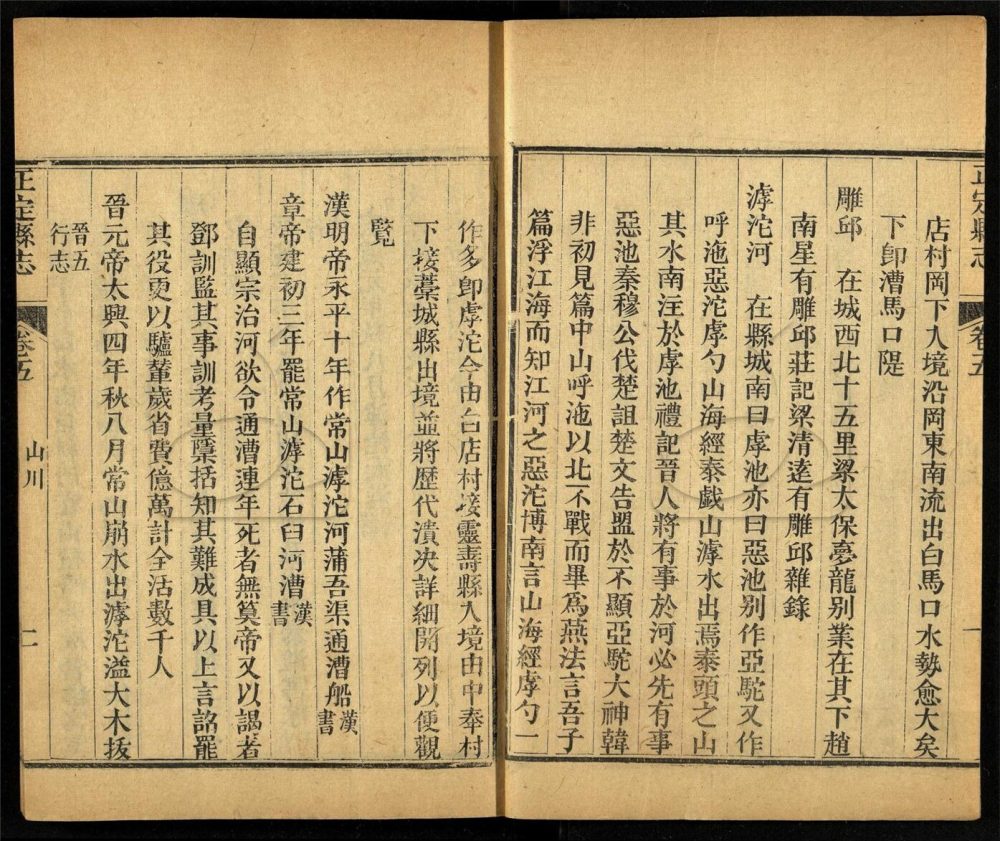 正定縣志
卷五
一
店村岡下入境沿岡東南流出白馬口水勢愈大矣
下卽漕馬口隄
雕邱　在城西北十五里梁太保夢龍别業在其下趙
南星有雕邱莊記梁清遠有雕邱雜錄
滹沱河　在縣城南曰虖池亦曰惡池别作亞駝又作
呼沲惡沱虖勺山海經泰戲山滹水出焉泰頭之山
其水南注於虖池禮記晉人將有事於河必先有事
惡池秦穆公伐楚詛楚文告盟於不顯亞駝大神韓
非初見篇中山呼沲以北不戰而畢爲燕法言吾子
篇浮江海而知江河之惡沱博南言山海經虖勺一
作多卽虖沱今由白店村接靈壽縣入境由中奉村
下接藁城縣出境並將歷代潰决詳細開列以便觀
覽
漢明帝永平十年作常山滹沱河蒲吾渠通漕船漢書
章帝建初三年罷常山滹沱石臼河漕漢書
自顯宗治河欲令通漕連年死者無筭帝又以謁者
鄧訓監其事訓考量隱括知其難成具以上言詔罷
其役更以驢輦歲省費億萬計全活數千人
晉元帝太興四年秋八月常山崩水出滹沱溢大木拔
晉五行志
正定縣志
卷五
山川
二